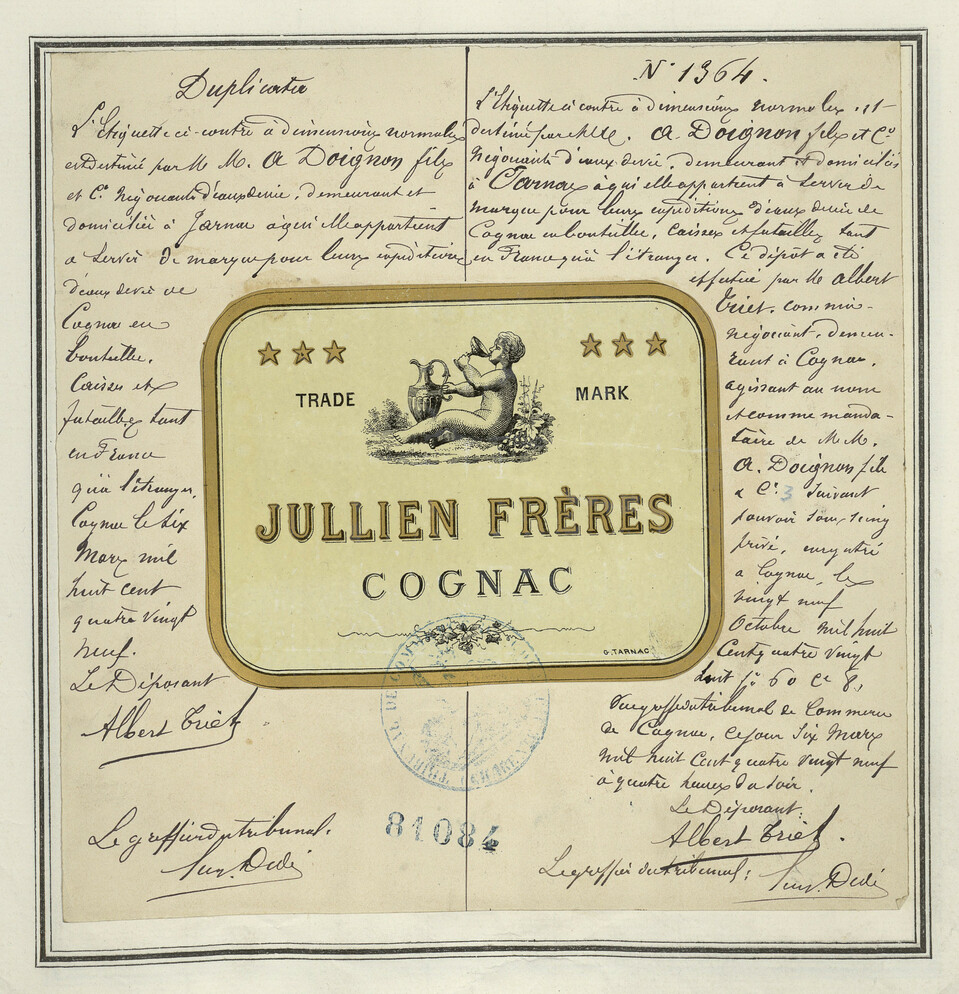 Duplicata
L'Etiquette ci-contre à dimensions normales
est destiné par M M. A Doignon fils
et Cie Négociants d'eaux devie, demeurant et
domicilié à Jarnac à qui elle appartient
a servir de marque pour leurs expéditions
d'eaux devie de
Cognac en
bouteilles,
Caisses et
futailles tant
en France
qu'à l'étranger.
Cognac le six
Mars mil
huit cent
quatre vingt
neuf.
Le Déposant
Albert Triet
Le greffier du tribunal.
N° 1364.
L'Etiquette ci contre à dimensions normales est
destiné par MM. A. Doignon fils et Cie
Négociants d'eaux devie, demeurant et domiciliés
à Jarnac à qui elle appartient à servir de
marque pour leurs expéditions d'eaux devie de
Cognac en bouteilles, Caisses et futailles tant
en France qu'à l'étranger. Ce dépôt a été
effectué par M Albert
Triet, commis-
négociant, demeu-
rant à Cognac,
agissant au nom
et comme manda-
taire de M M.
A. Doignon fils
& Cie. 3 Suivant
pouvoir sous seing
privé, enregistré
à Cognac, le
vingt neuf
Octobre mil huit
Cent quatre vingt
huit fo 60 Ce 8,
Au greffe du tribunal de Commerce
de Cognac, ce jour Six Mars
mil huit Cent quatre vingt neuf
à quatre heures du soir.
Le Déposant.
Albert Triet.
Le greffier du tribunal:
TRADE MARK
JULLIEN FRÈRES
COGNAC
G. TARNAC
81084